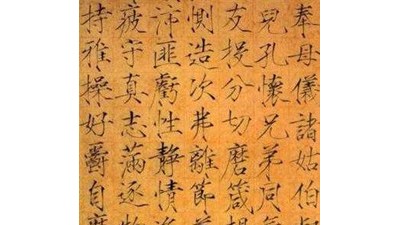 奉母儀諸姑伯叔
兒孔懷兄弟同氣
友投分切磨箴規
惻造次弗離節義
沛匪虧性靜情逸
疲守真志滿逐物
持雅操好爵自縻